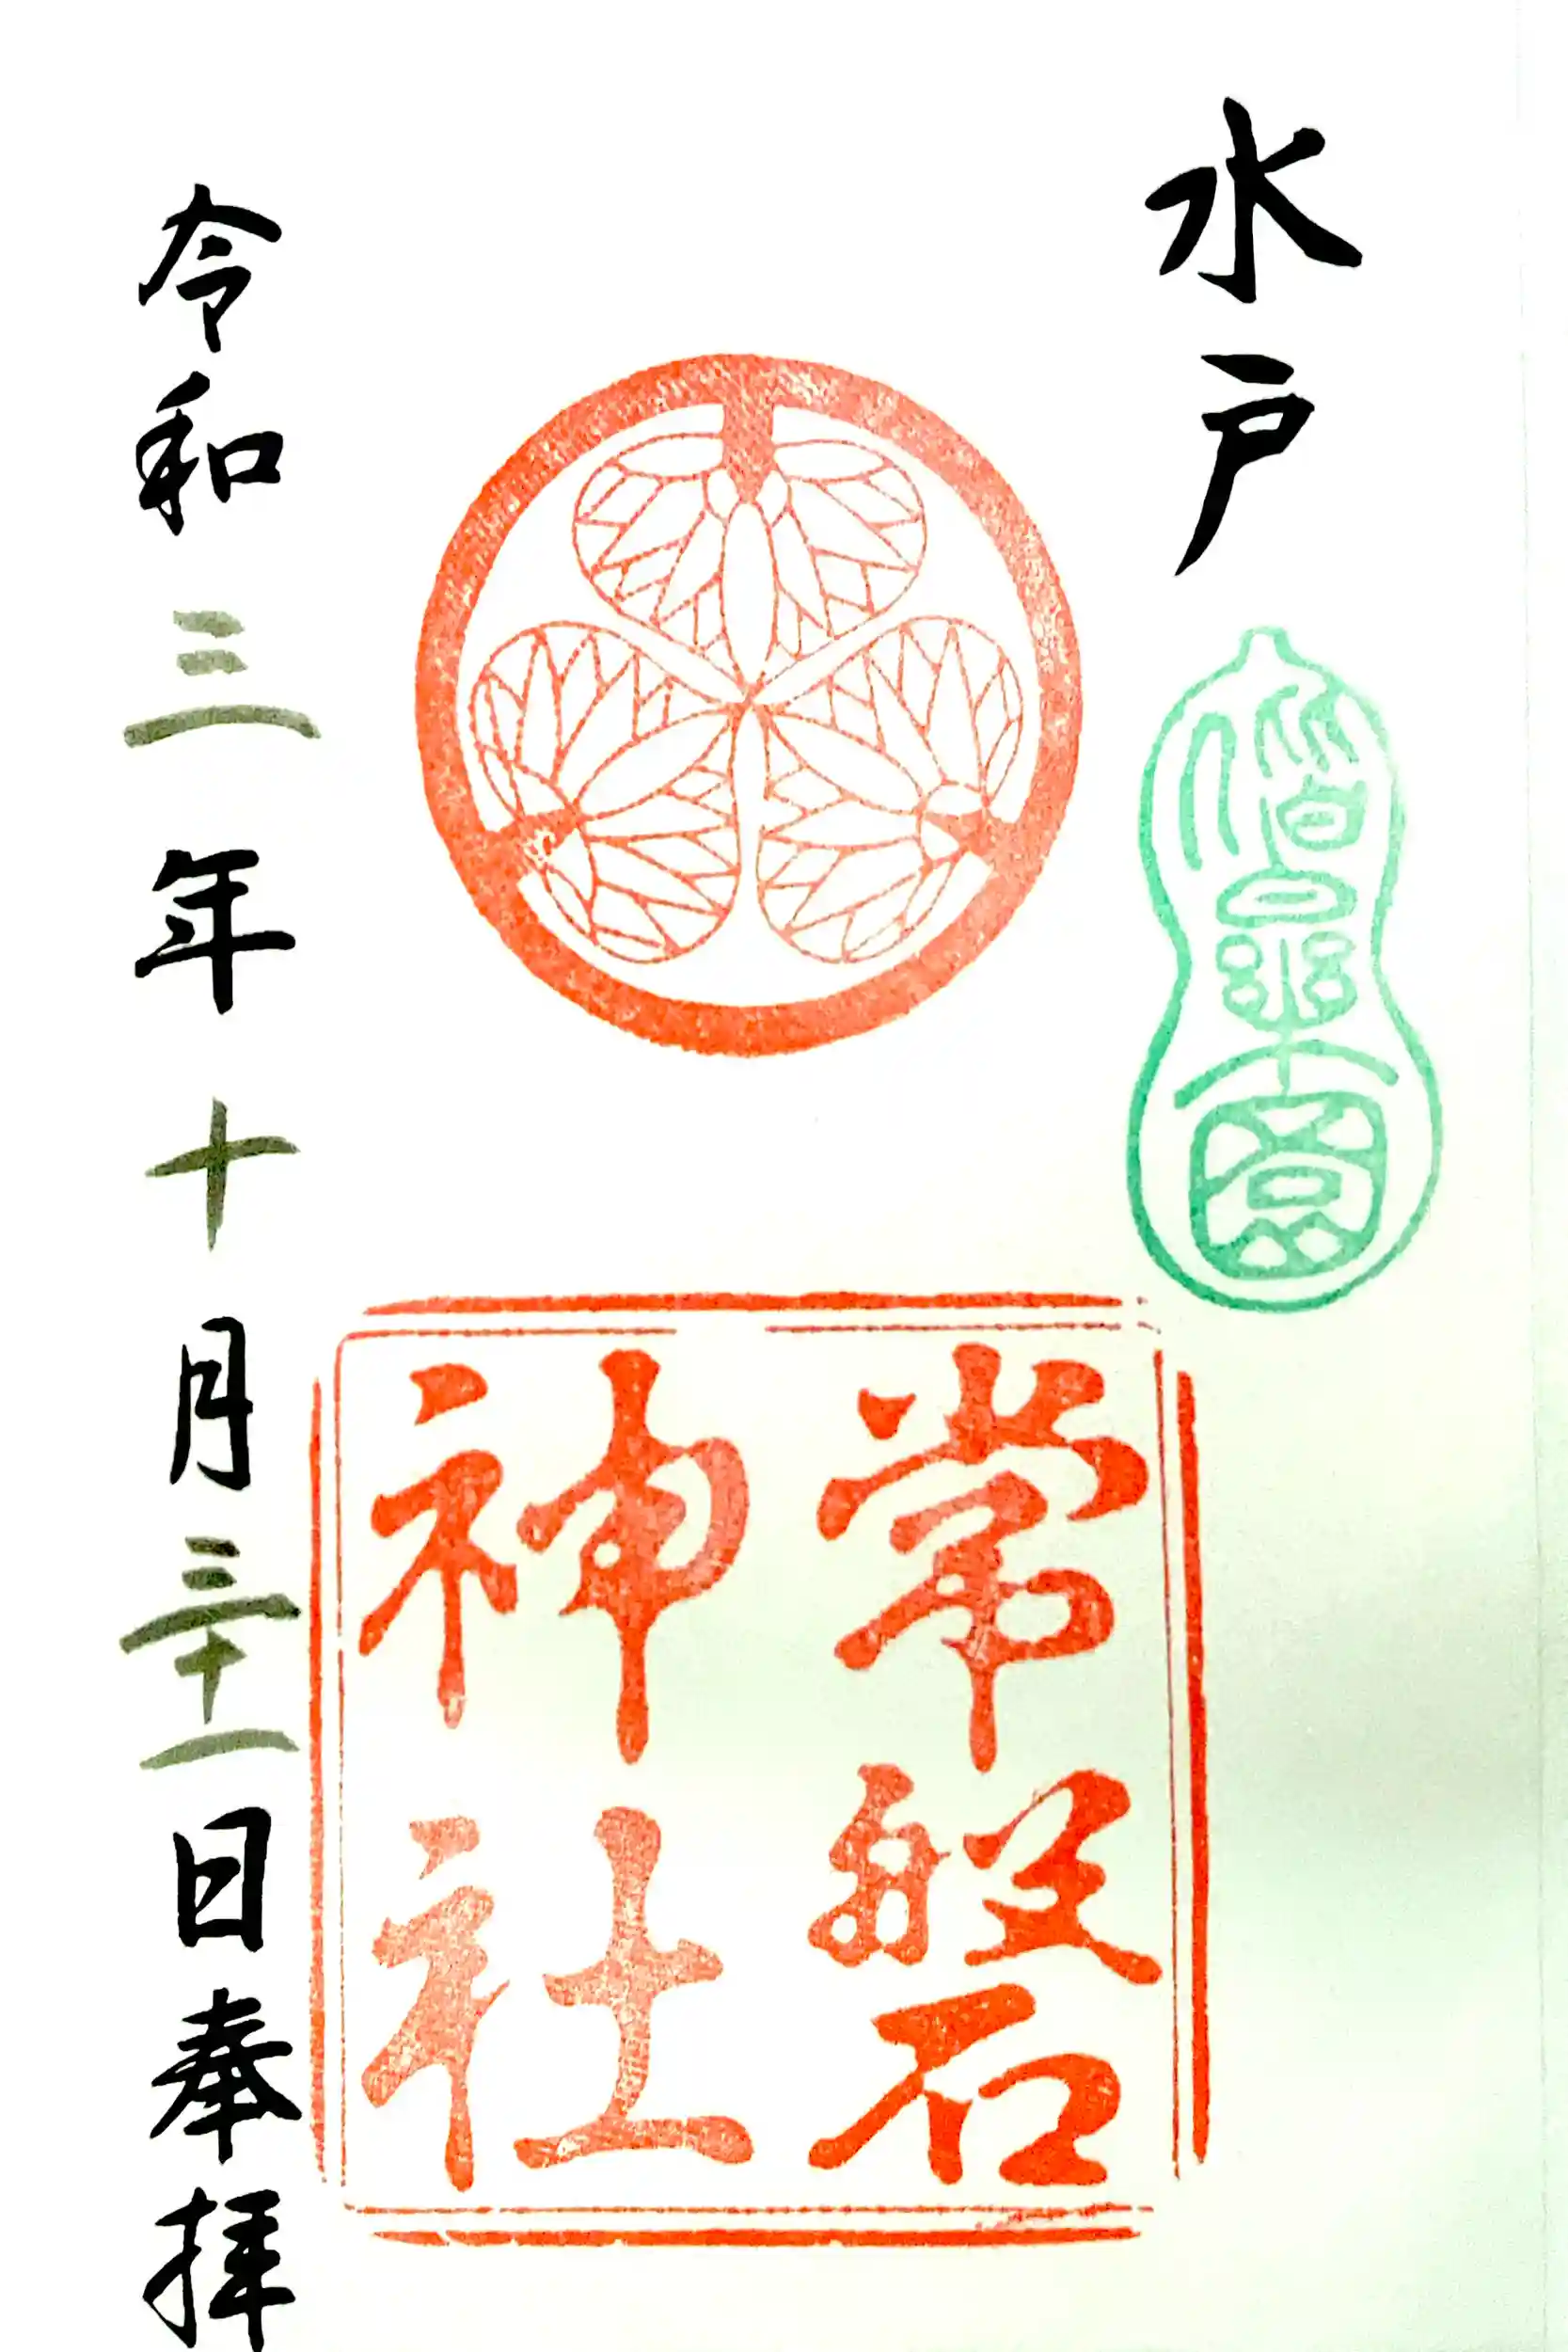 水戸
偕楽園
常磐
神社
令和三年十月三十一日奉拝